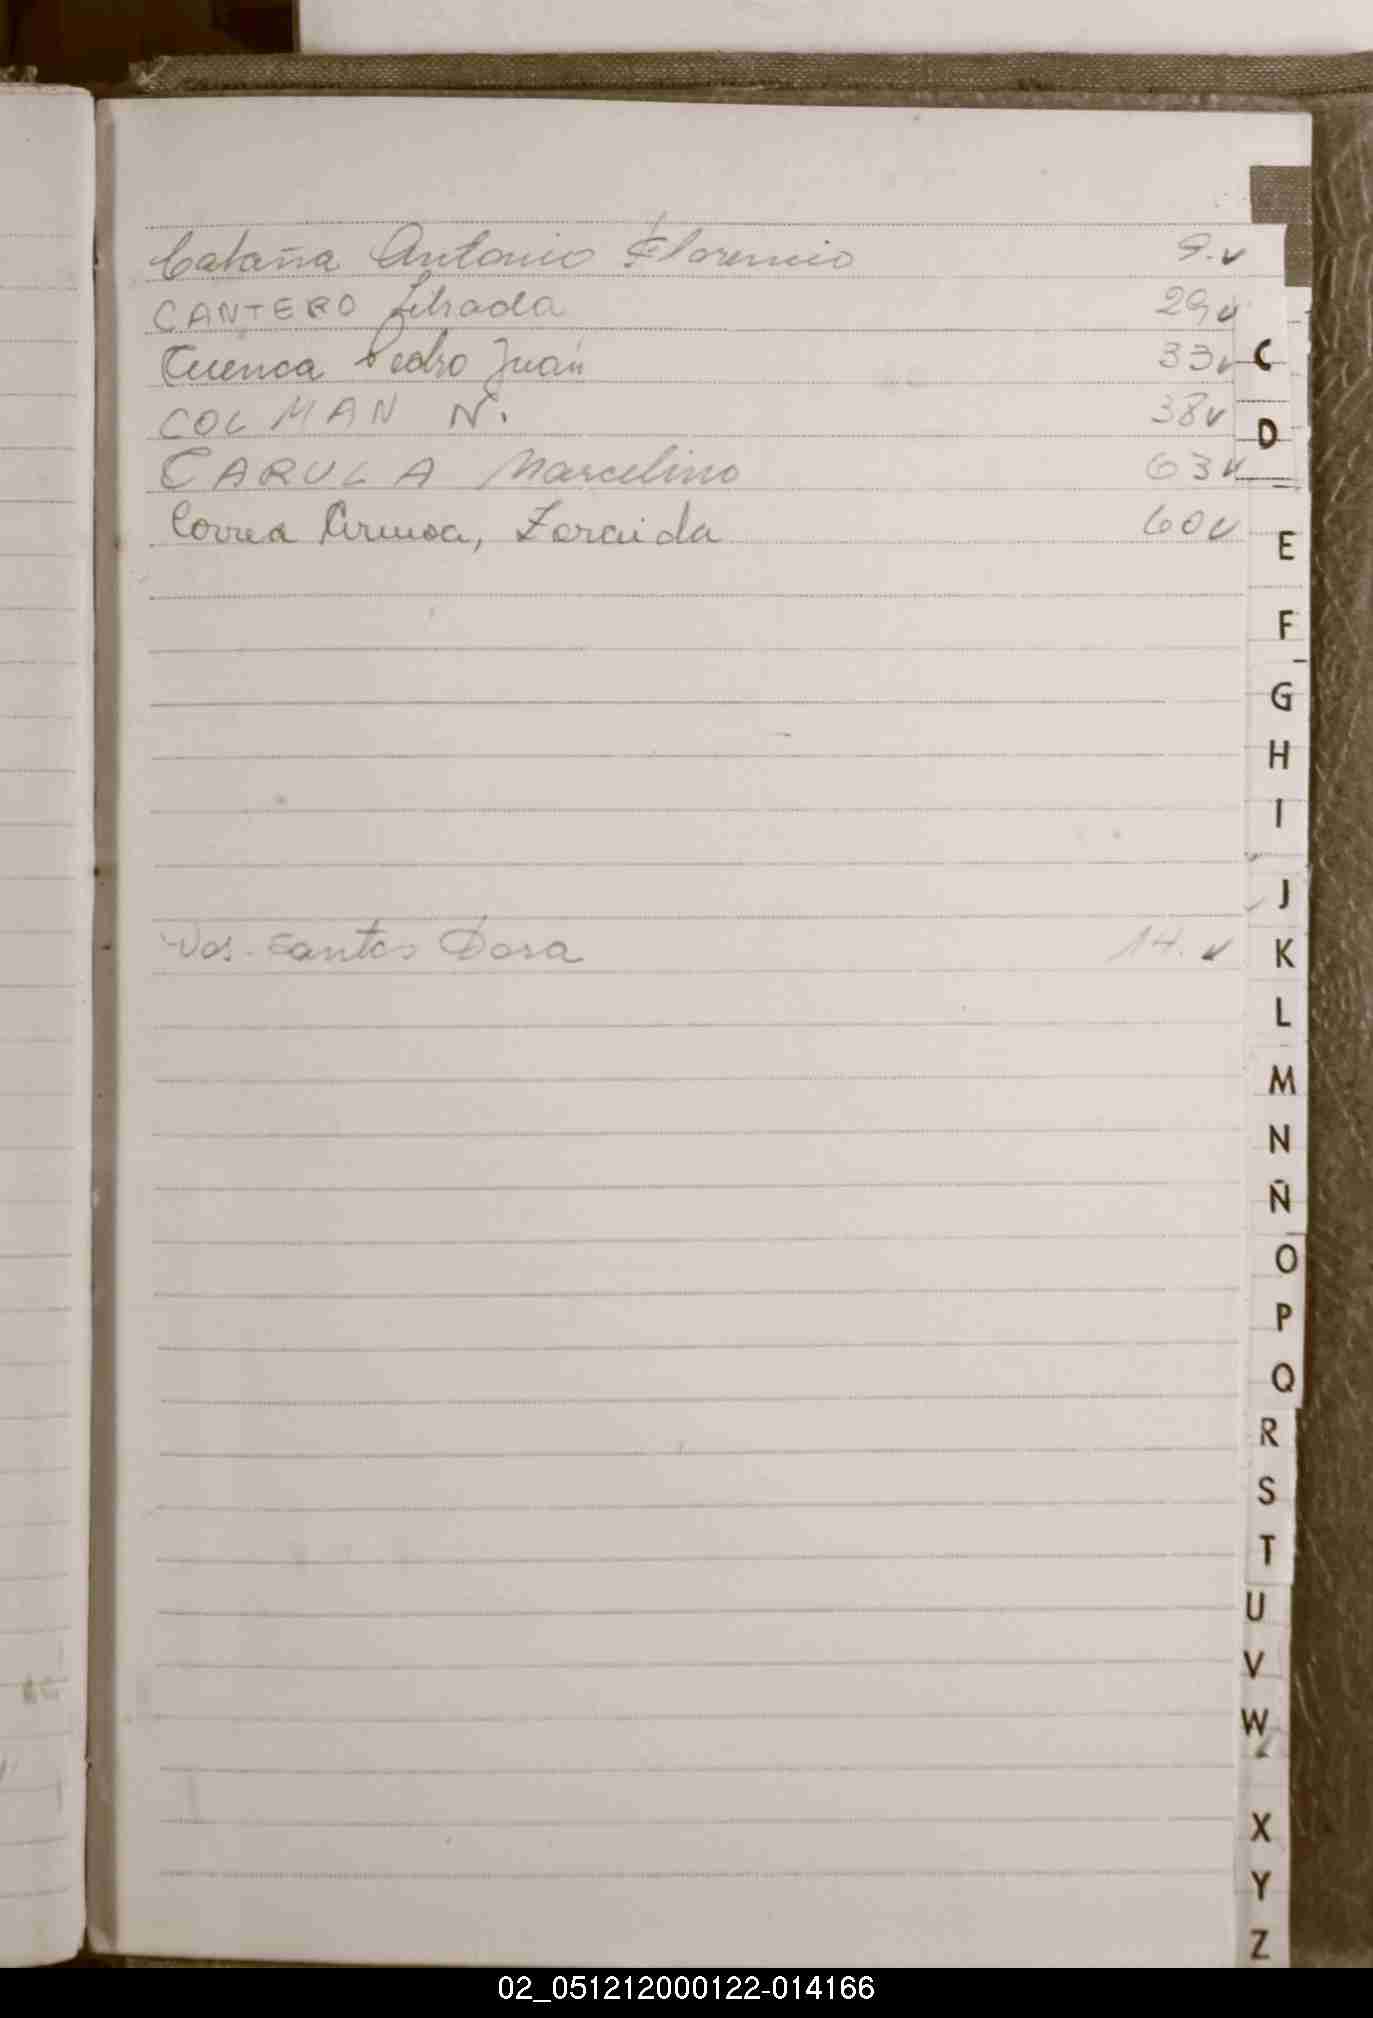 Cataña Antonio Florencio 9.✓
CANTERO Librada 29✓
Cuenca Pedro Juan 33✓
COLMAN N. 38✓
CARULA Marcelino 63✓
Correa Zoraida 60✓
Dos Santos Dora 14.✓
C
D
E
F
G
H
I
J
K
L
M
N
Ñ
O
P
Q
R
S
T
U
V
W
X
Y
Z
02_051212000122-014166